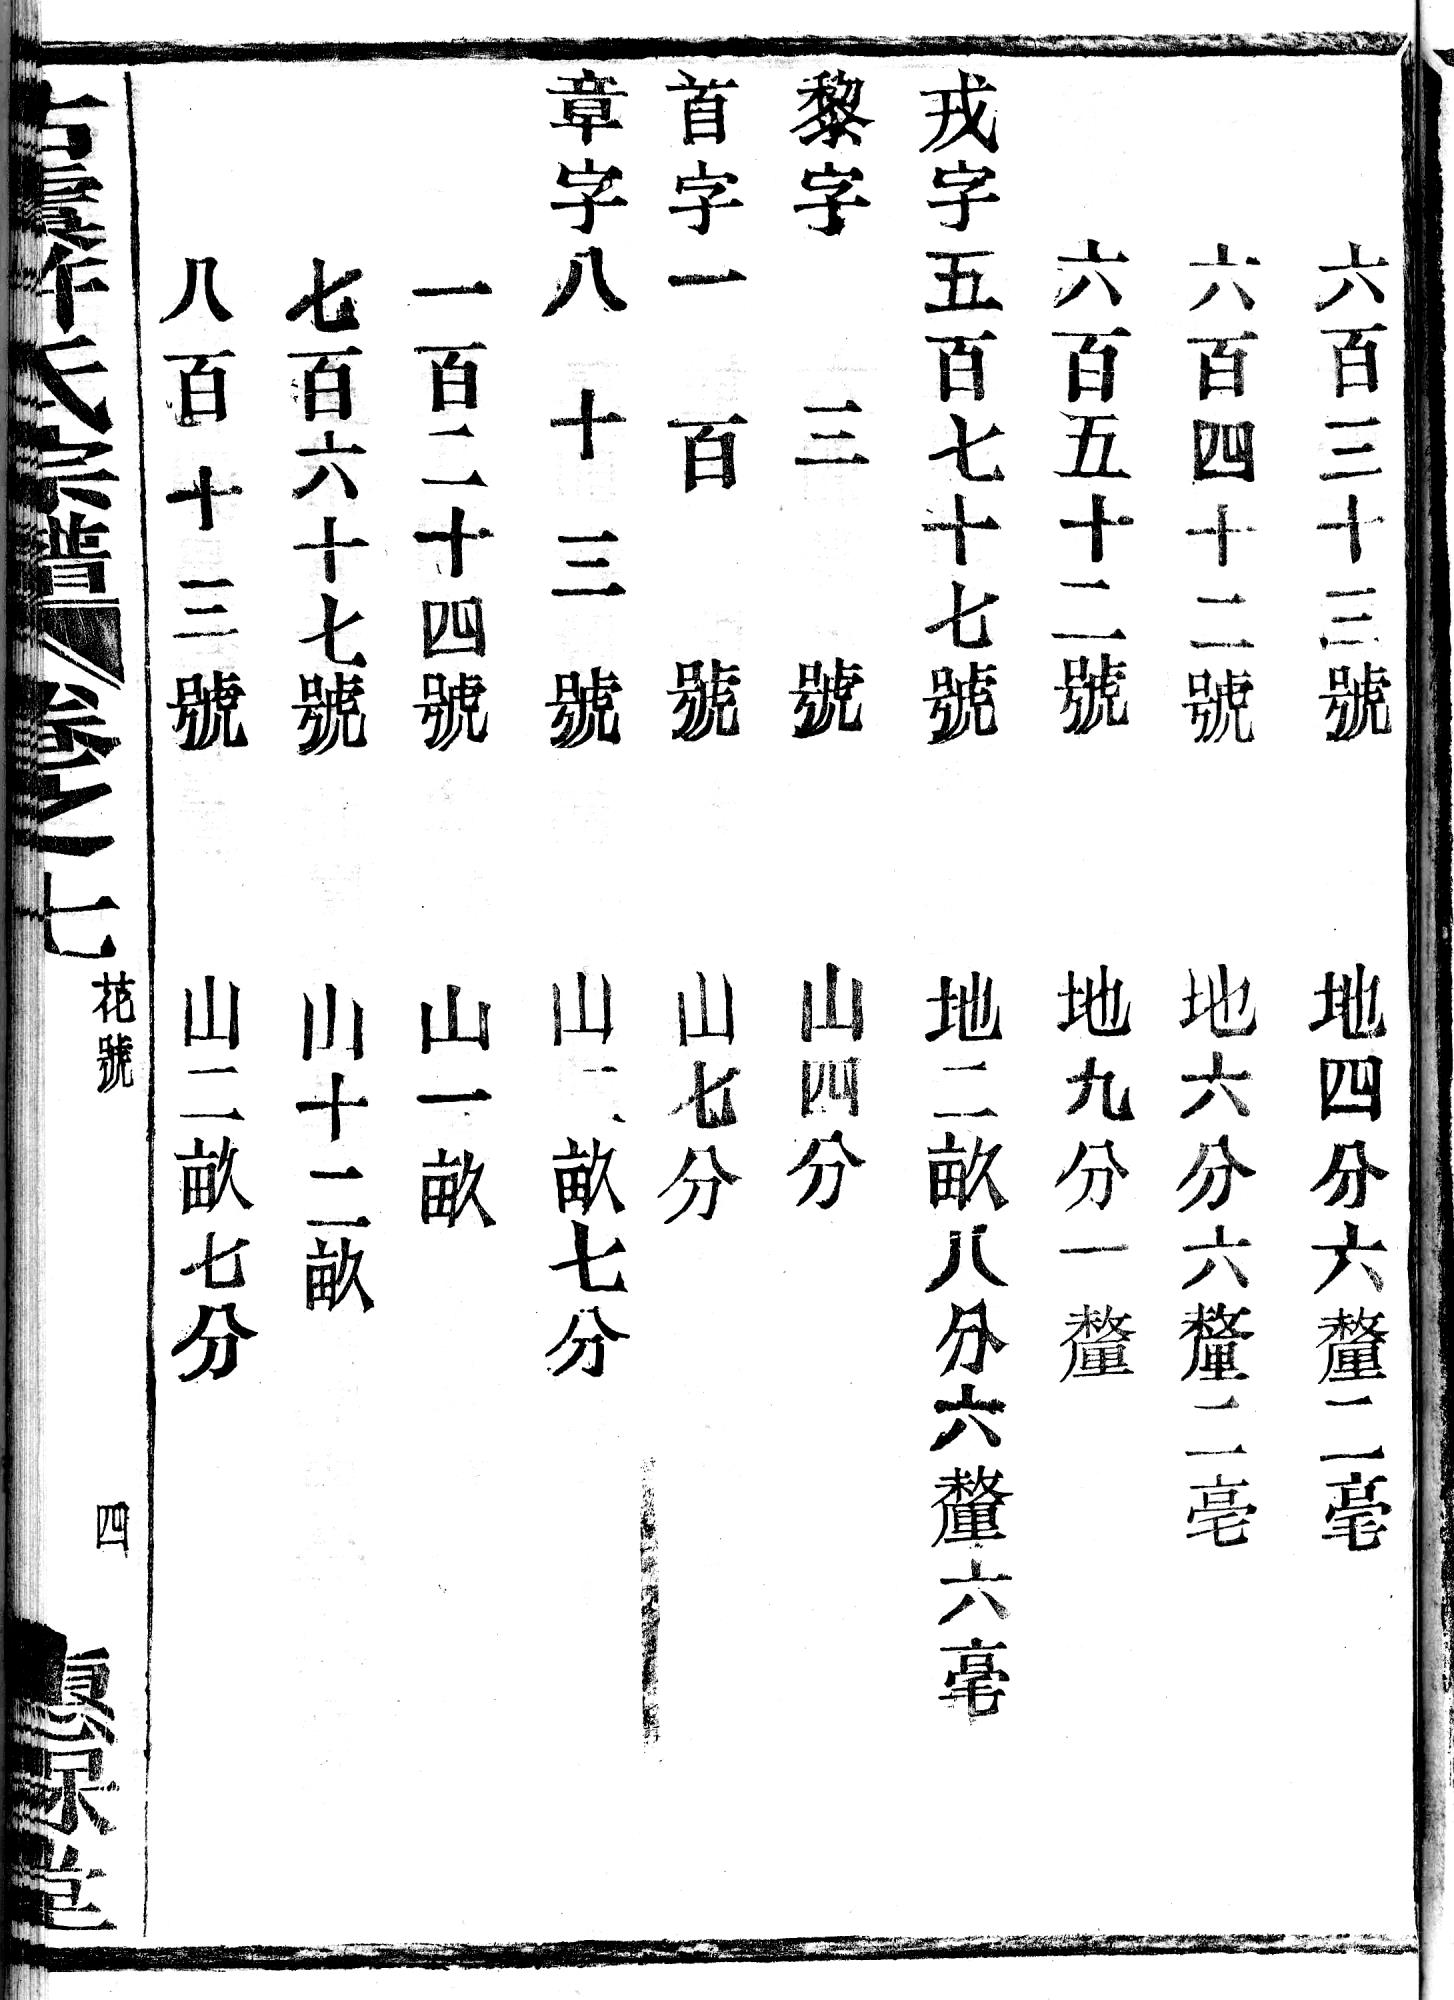 六百三十三號 地四分六釐二毫
六百四十二號 地六分六釐二毫
六百五十二號 地九分一釐
戎字五百七十七號 地二畝八分六釐六毫
黎字 三號 山四分
首字一百號 山七分
章字八十三號 山 畝七分
一百二十四號 山一畝
七百六十七號 山十二畝
八百十三號 山二畝七分
許氏宗譜 卷之七 花號 四 惠 堂